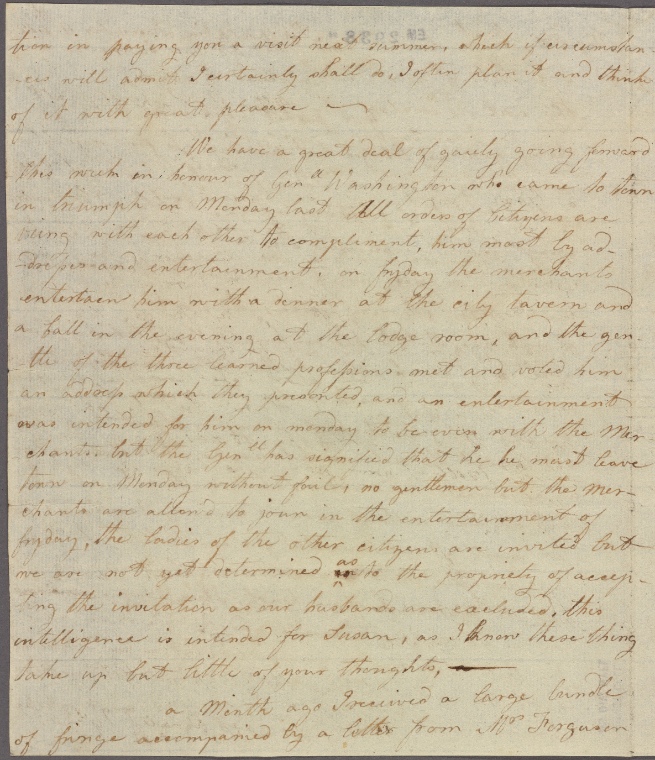 tion in paying you a visit next summer, which if circumstan-
-ces will admit I certainly shall do, I often plan it and think
of it with great pleasure
We have a great deal of gaiety going forward
this week in honour of Genll Washington who came to town
in triumph on Monday last All orders of Citizens are
vieing with each other to compliment, him most by ad-
-dresses and entertainment. on fryday the merchants
entertaen him with a dinner at the city tavern and
a ball in the evening at the lodge room, and the gen-
-tle of the three learned professions met and voted him
an address which they presented, and an entertainment
was intended for him on monday to be even with the Mer-
-chants. but the Genll has signified that he he must leave
town on Monday without fail, no gentlemen but the Mer-
-chants are allow'd to join in the entertainment of
fryday, the ladies of the other citizens are invited but
we are not yet determined as to the propriety of accep-
-ting the invitation as our husbands are excluded. this
intelligence is intended for Susan, as I know these thing
take up but little of your thoughts,
a Month ago I received a large bundle
of fringe accompanied by a letter from Mrs Ferguson